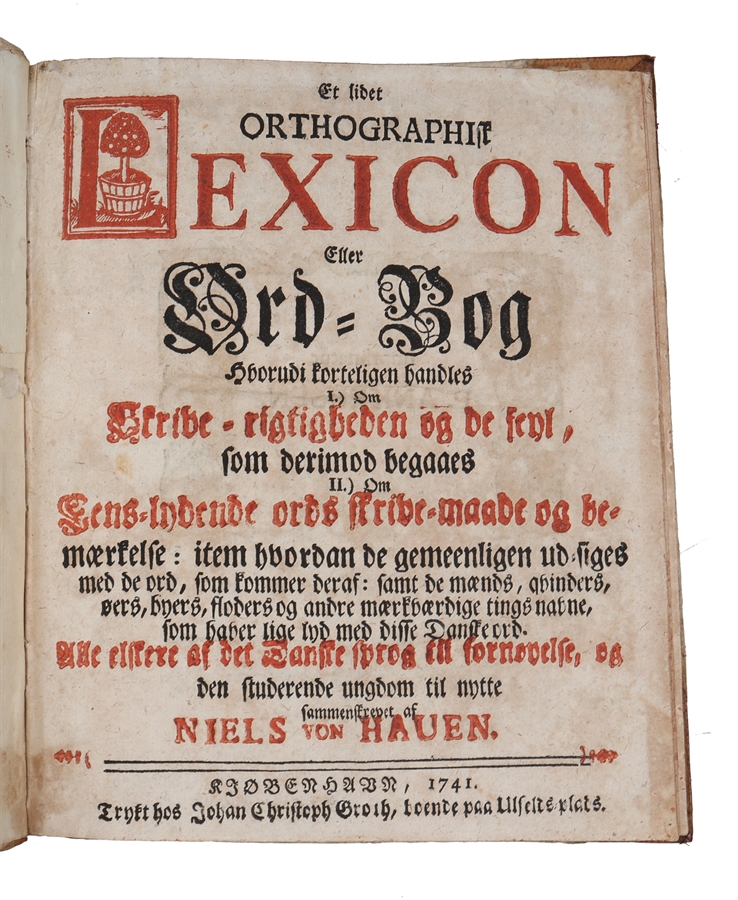 Et lidet
ORTHOGRAPHIſk
LEXICON
Eller
Ord-Bog
Hvorudi korteligen handles
I.) Om
Skrive-rigtigheden og de feyl,
ſom derimod begaaes
II.) Om
Eens-lydende ords ſkrive-maade og be-
mærkelſe: item hvordan de gemeenligen ud-ſiges
med de ord, ſom kommer deraf: ſamt de mænds, qvinders,
øers, byers, floders og andre mærkværdige tings navne,
ſom haver lige lyd med diſſe Danſke ord.
Alle elſkere af det Danſke ſprog til fornøyelſe, og
den ſtuderende ungdom til nytte
ſammenſkrevet af
NIELS VON HAUEN.
KIØBENHAVN, 1741.
Trykt hos Johan Chriſtoph Groth, boende paa Ulfelts-plats.